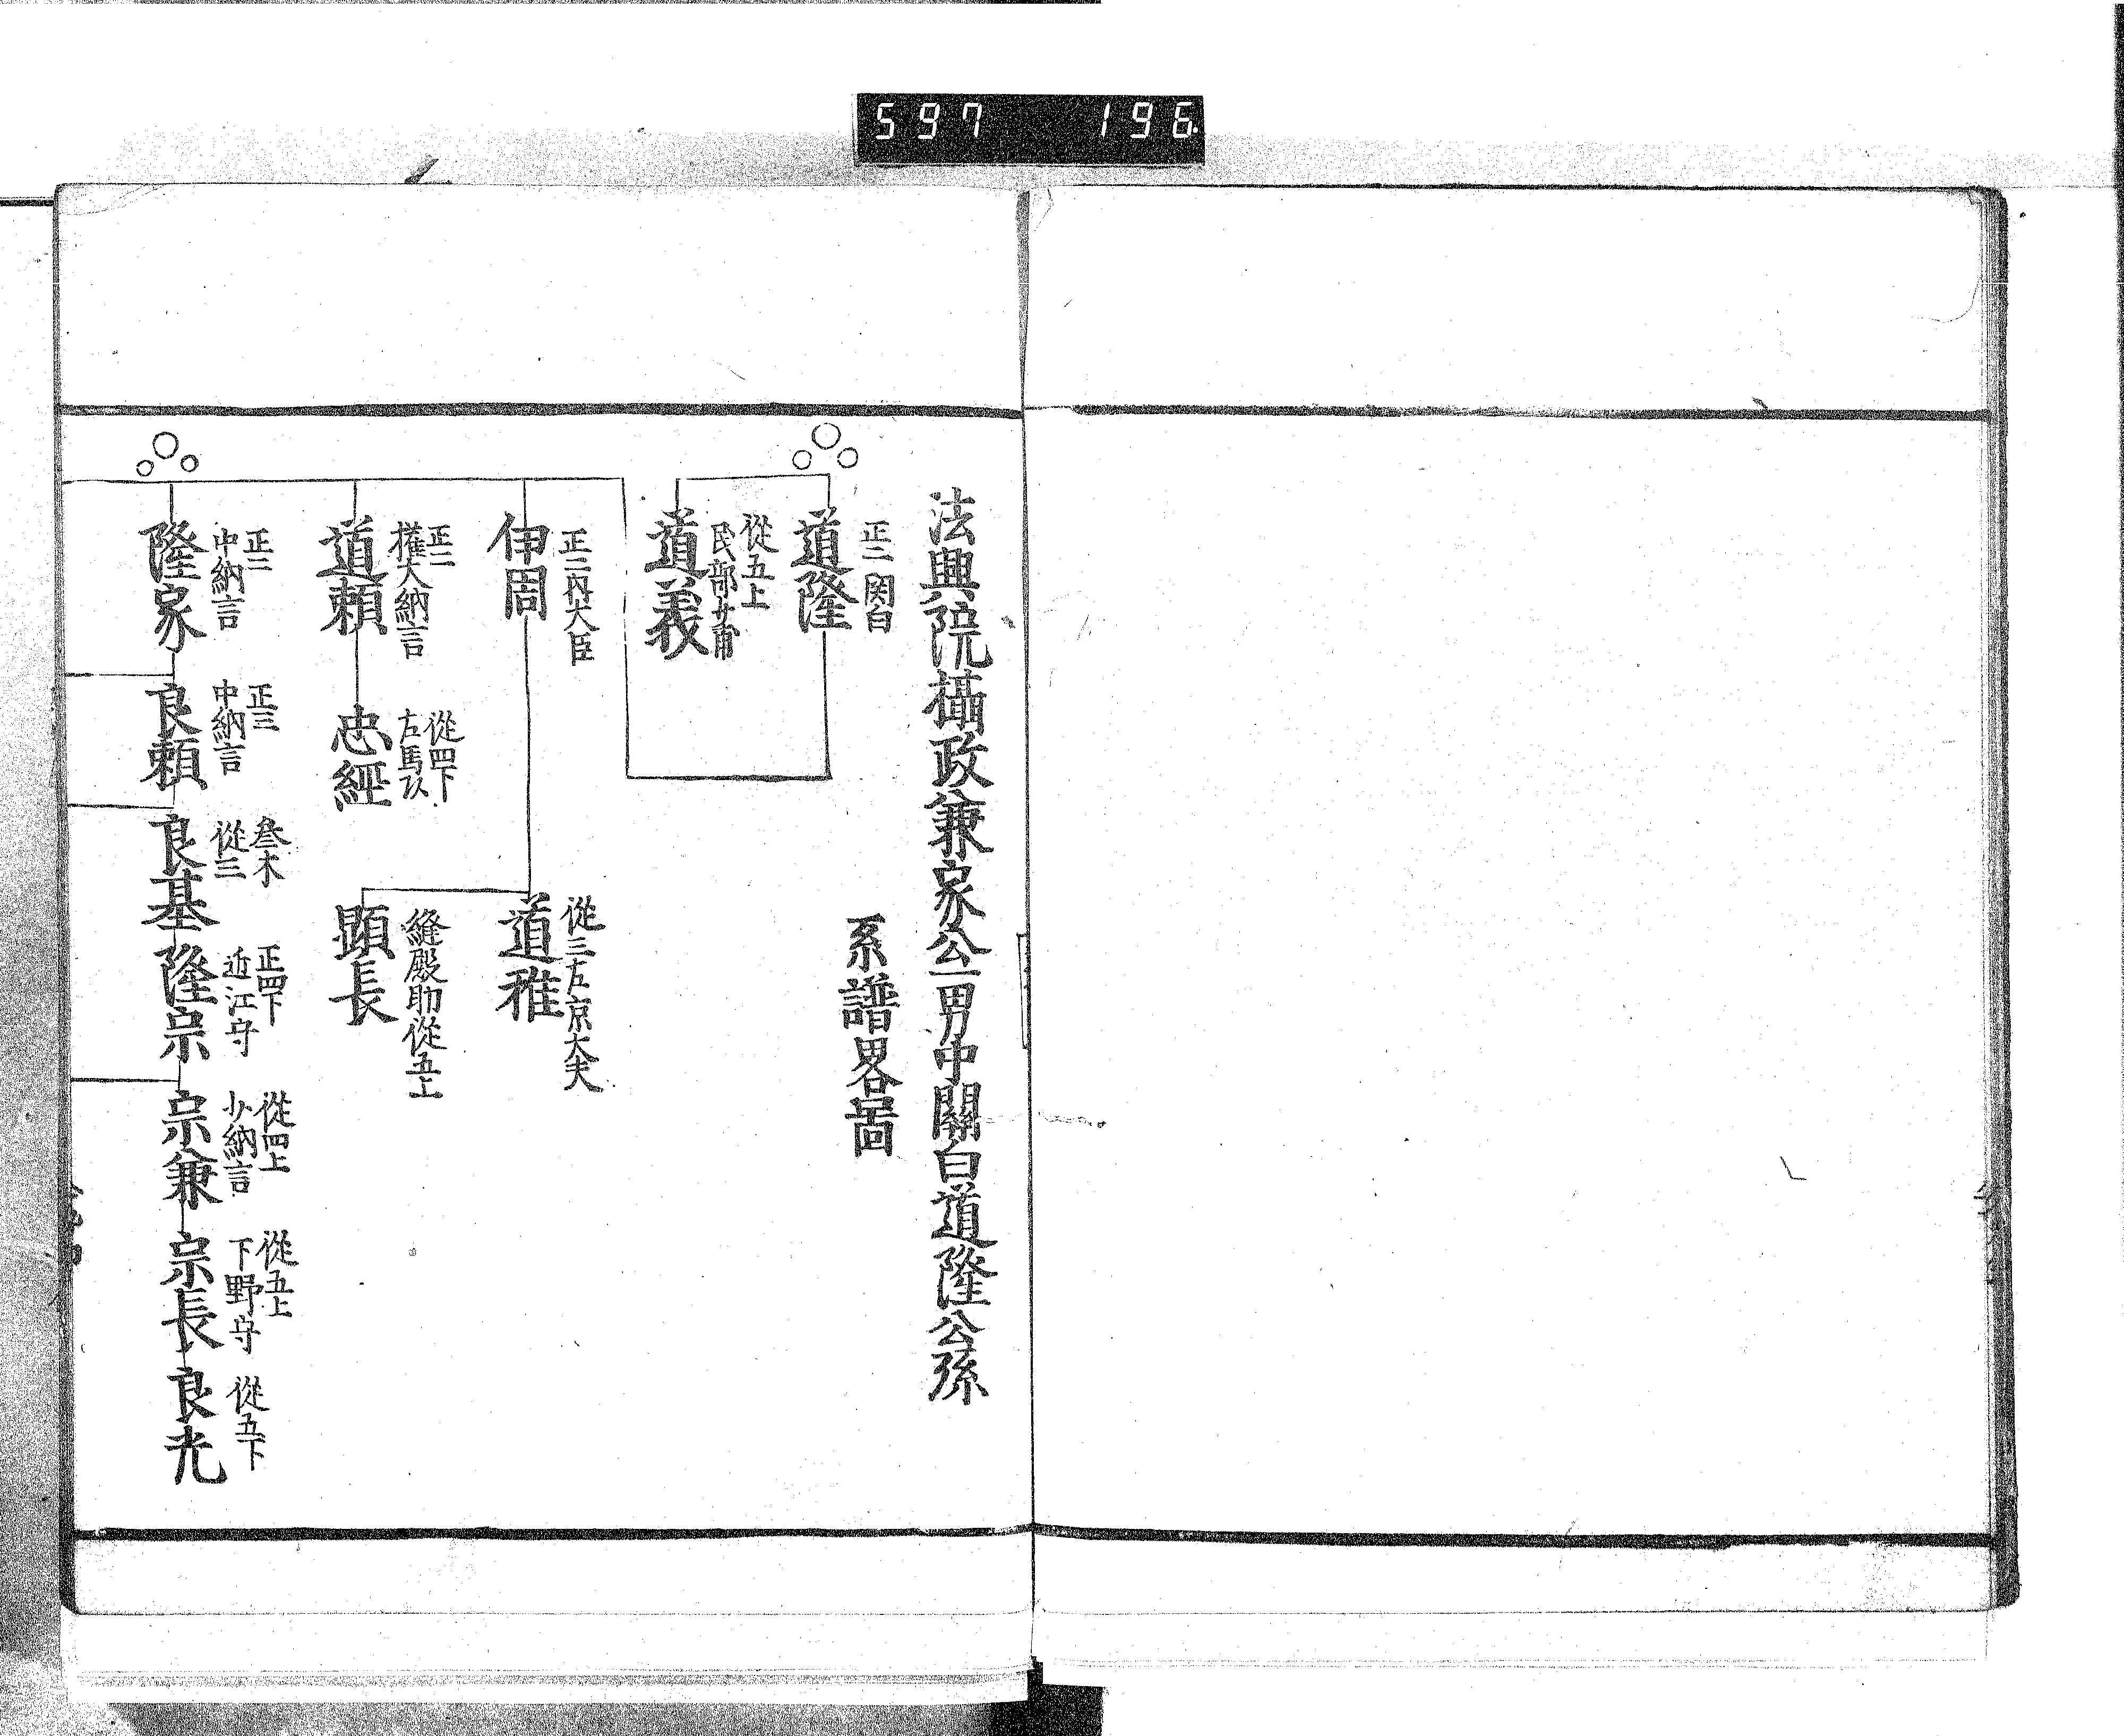 597 196
法興院攝政兼家公一男中關白道隆公孫
系譜畧啚
正二 関白
道隆
從五上
民部少甫
道義
正二内大臣
伊周
從三左京大夫
道雅
縫殿助從五上
顕長
正二
權大納言
道頼
從四下
左馬
忠經
正二
中納言
隆家
正三
中納言
良頼
叄木
從三
良基
正四下
近江守
隆宗
從四上
少納言
宗兼
從五上
下野守
宗長
從五下
良光